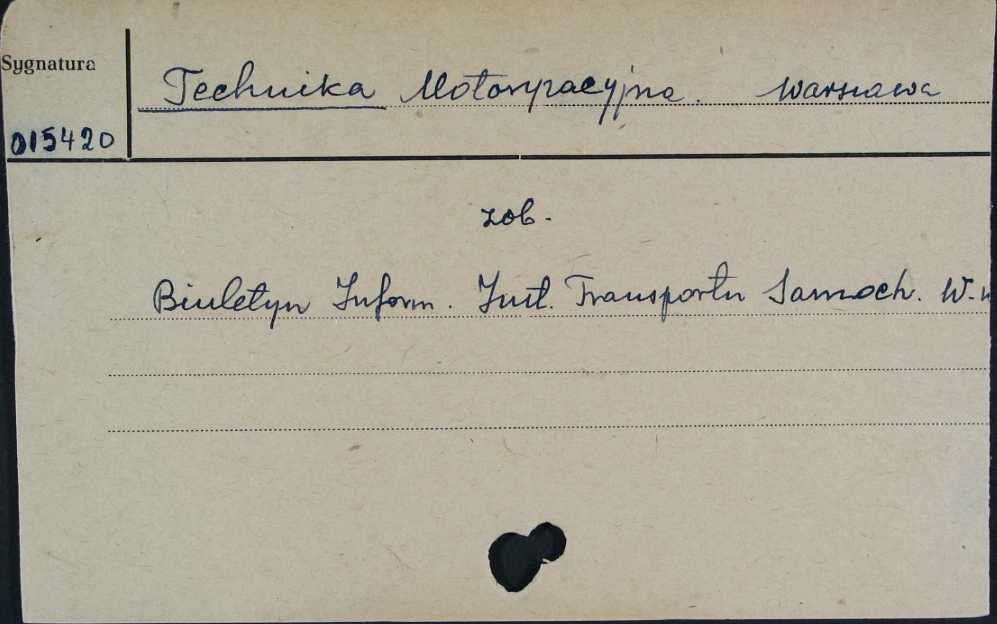 Sygnatura
Technika Motoryzacyjna. Warszawa
015420
zob.
Biuletyn Inform. Inst. Transportu Samoch. W-w